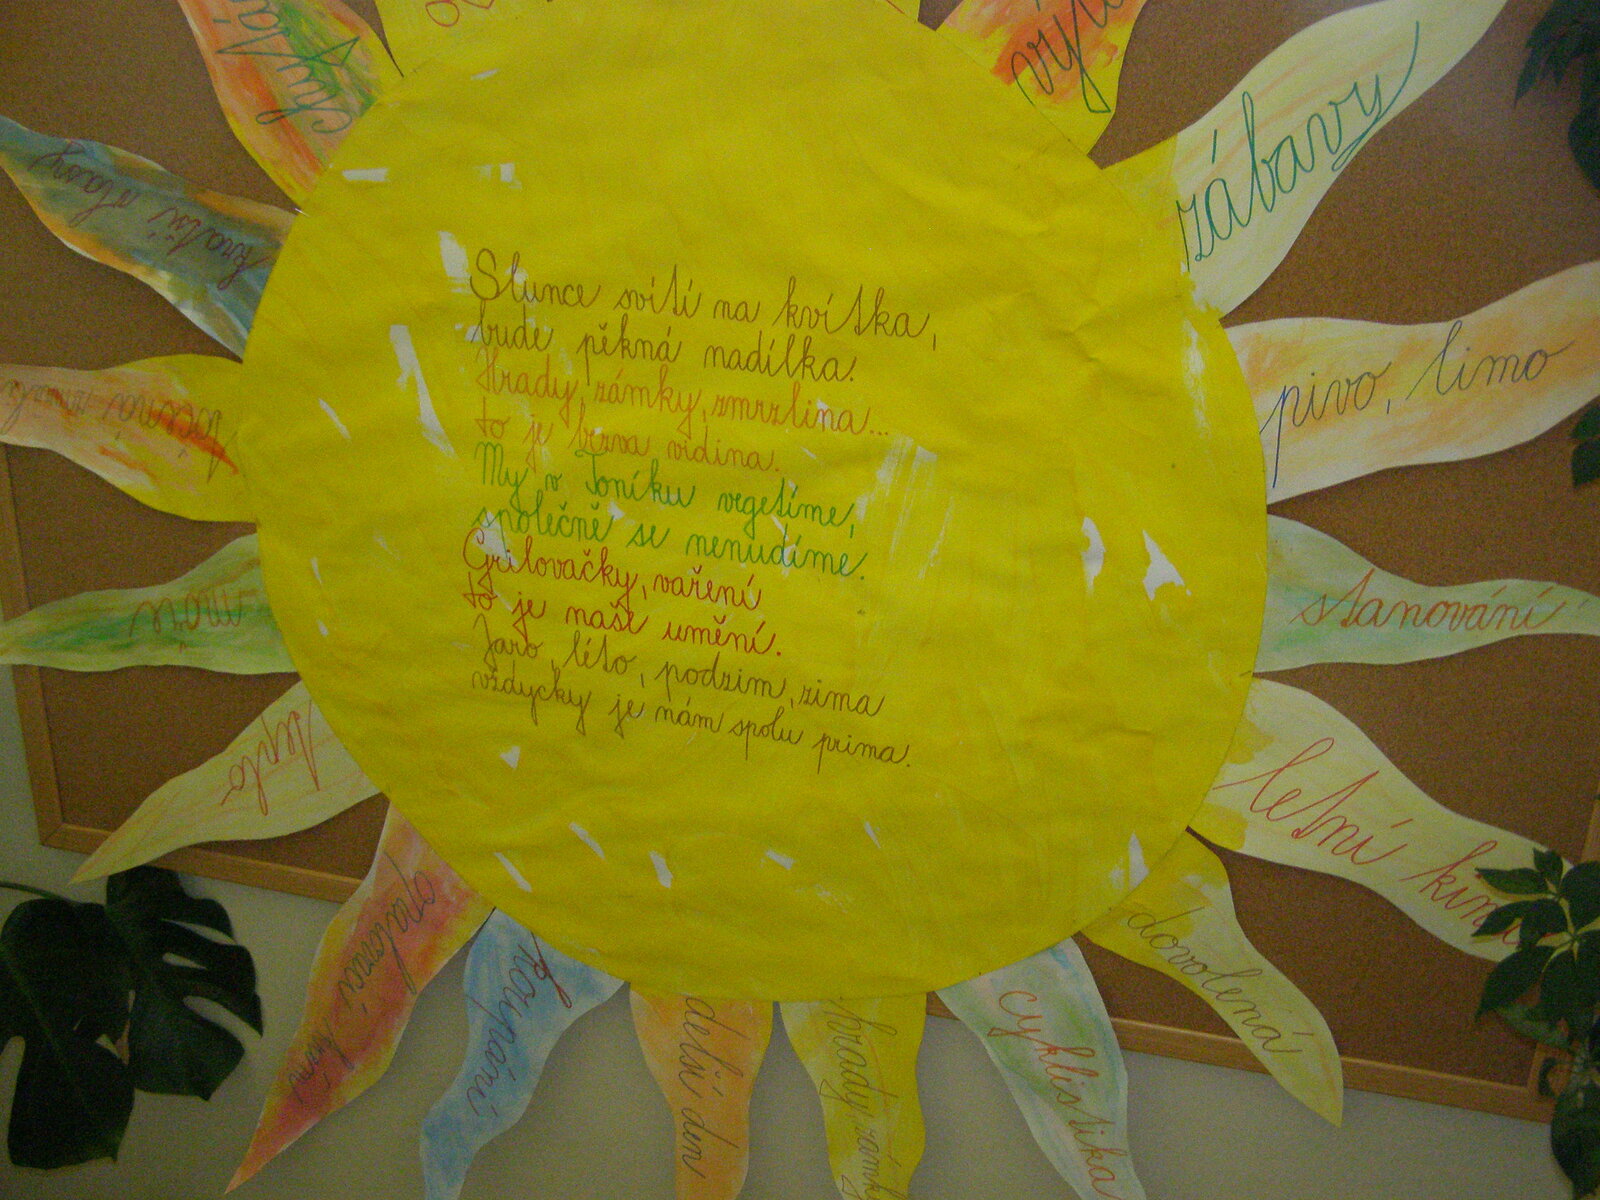 Slunce svítí na kvítka,
bude pěkná nadílka.
Hrady, zámky, zmrzlina...
to je bzva vidina.
My v Toníku vegetíme,
společně se nenudíme.
Grilovačky, vaření
to je naše umění.
Jaro, léto, podzim, zima
vždycky je nám spolu prima.
zábavy
pivo, limo
stanování
letní kino
dovolená
cyklistika
hrady zámky
delší den
koupání
opalování
teplo
moře
točená zmrzlina
kratší